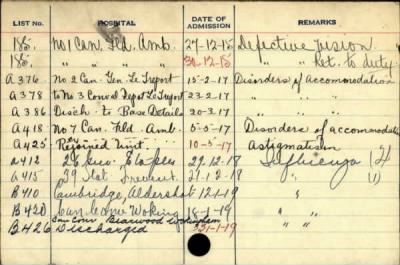 LIST No. HOSPITAL DATE OF ADMISSION REMARKS
185. No 1 Can. Fld. Amb. 27-12-15 Defective Vision.
185. " " " " 30-12-15 " Ret. to duty
A376 No 2 Can. Gen. Le Treport 15-2-17 Disorders of accomodation
A378 to No 3 Conval Depot Le Treport 23-2-17 " "
A386 Disch. to Base Details 20-3-17 " "
A418 No 7 Can. Fld. Amb. 5-5-17 Disorders of accomodat
A425 Rejoined Unit. 10-5-17 Astigmatism
A412 26 Elaples 29.12.18 Influenza
A415 39 Stat 31-12-18 (1)
B410 Cambridge, Aldershot 12-1-19 "
B420 Woking 18-1-19 " "
B426 Can Conv Bearwood Wokingham
Discharged 31-1-19 " "